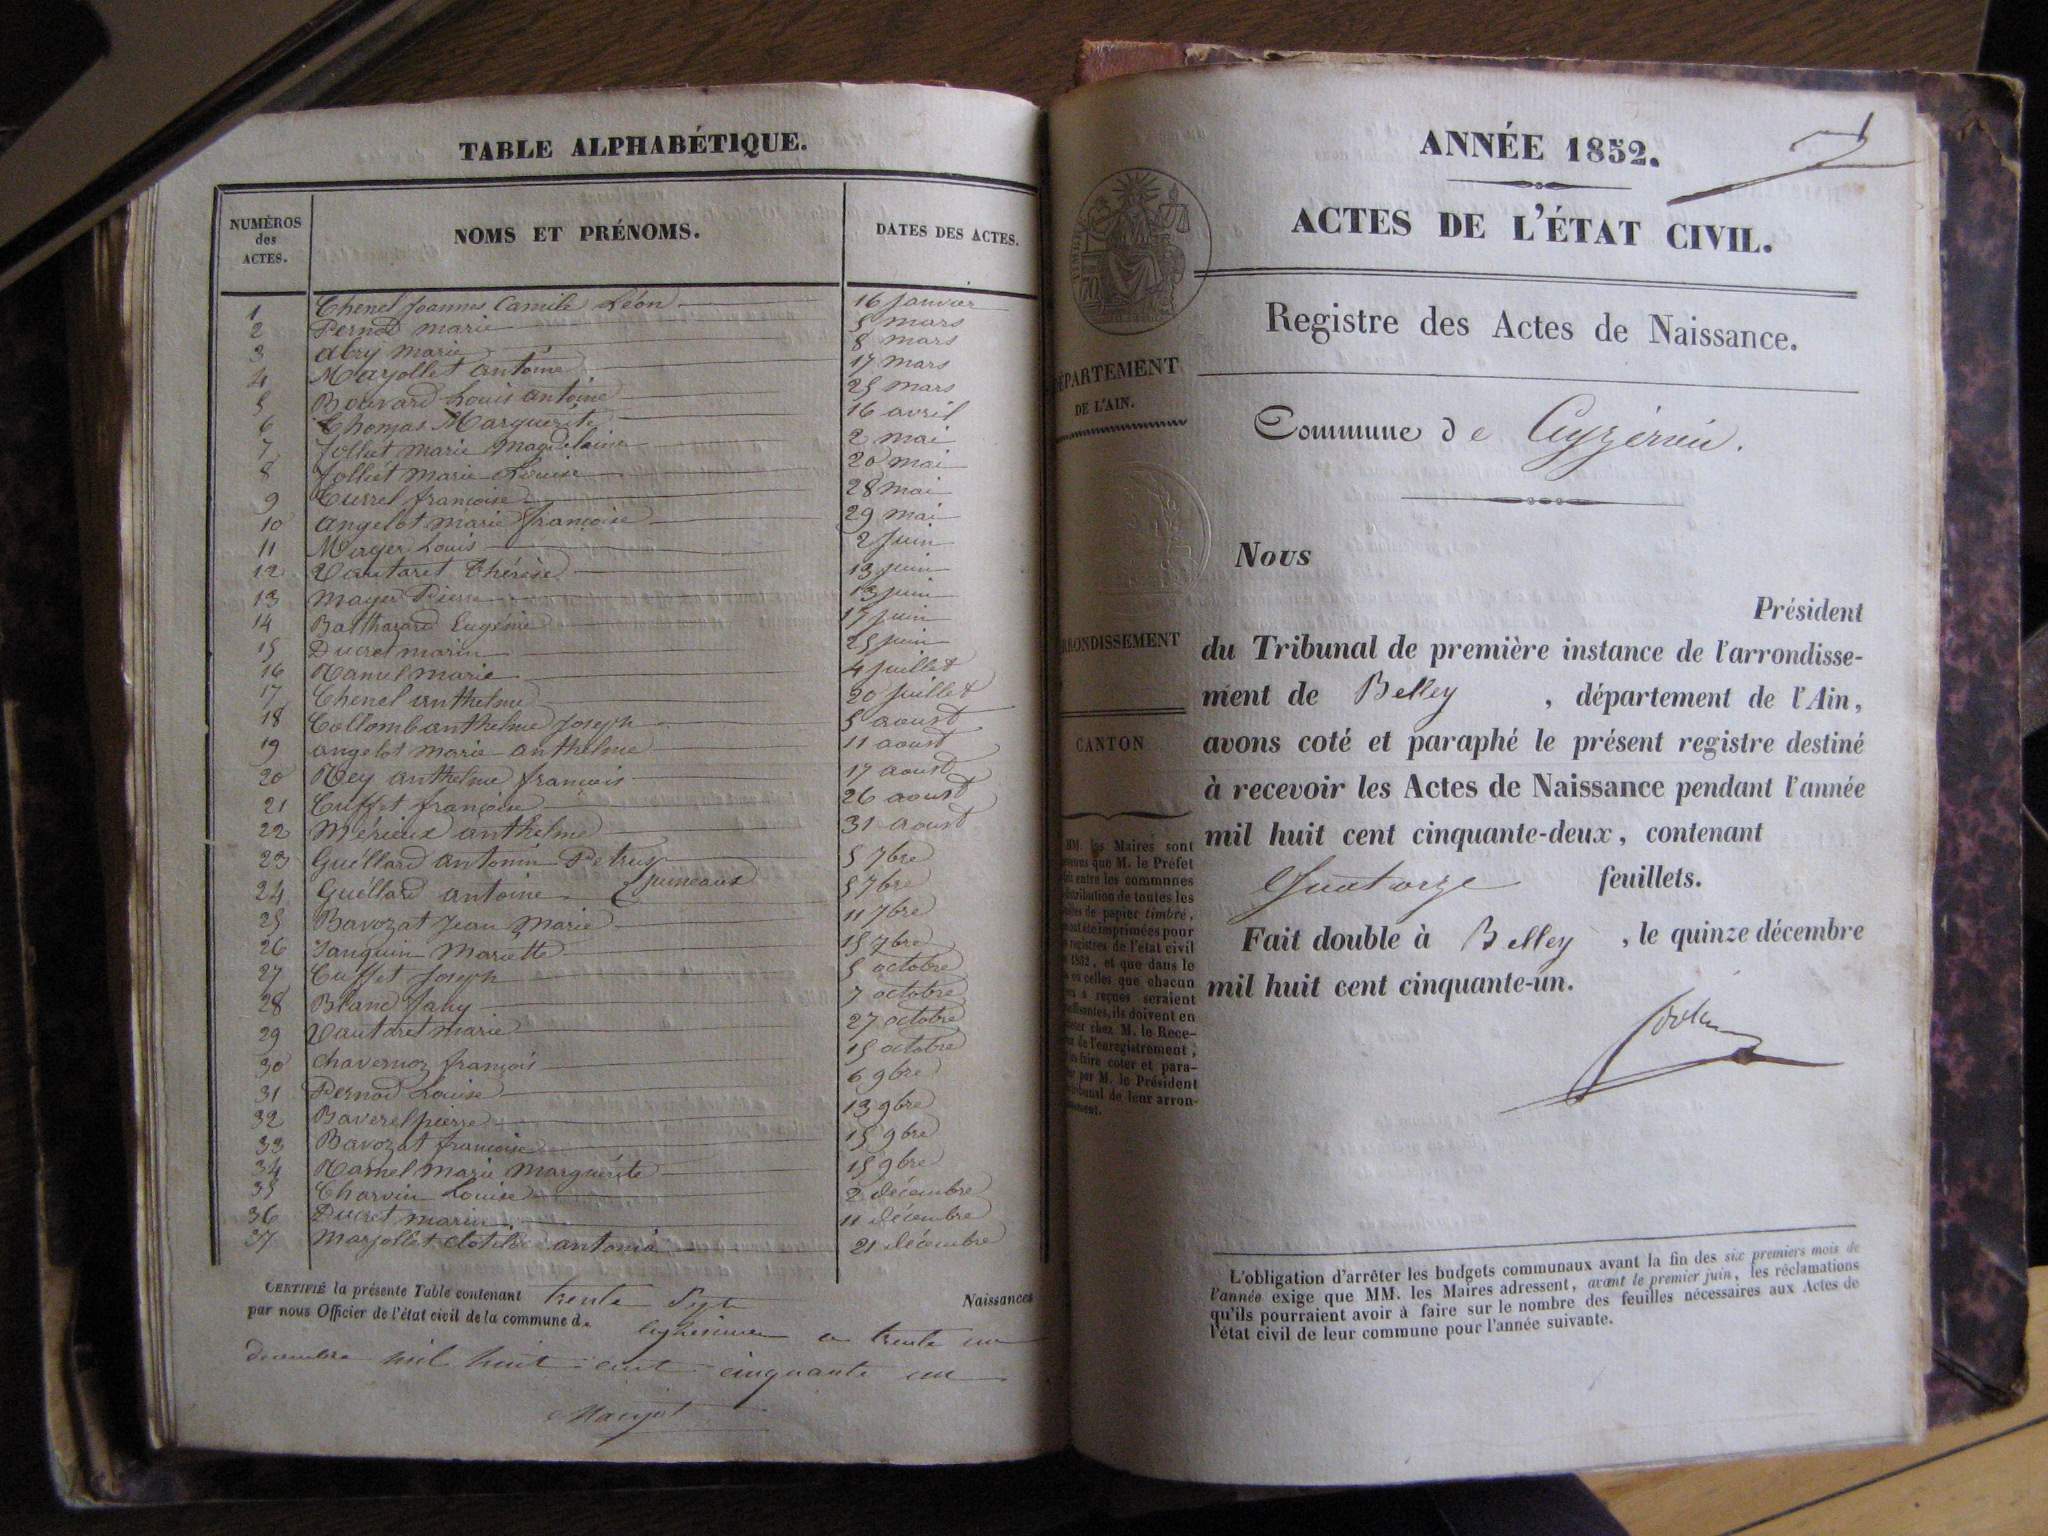 TABLE ALPHABÉTIQUE.
NUMÉROS des ACTES. NOMS ET PRÉNOMS. DATES DES ACTES.
1 Chenel Joannes Camile Léon 16 Janvier
2 Pernod marie 5 mars
3 abry marie 8 mars
4 Marjollet antoine 17 mars
5 Bouvard Louis antoine 25 mars
6 Thomas Marguerite 16 avril
7 Jolliet marie magdelaine 2 mai
8 Jolliet marie Louise 20 mai
9 Currel françoise 28 mai
10 angelot marie françoise 29 mai
11 Mayer Louis 2 Juin
12 Vautaret Thérèse 13 juin
13 mayer Pierre 13 juin
14 Balthazard Eugénie 17 juin
15 Ducret marin 25 juin
16 Ramel marie 4 juillet
17 Chenel anthelme 20 juillet
18 Collomb anthelme Joseph 5 aoust
19 angelot marie anthelme 11 aoust
20 Rey anthelme françois 17 aoust
21 Cuffet françoise 26 aoust
22 Mérieux anthelme 31 aoust
23 Guéllard antonin Petrus 5 7bre
24 Guéllard antoine jumeaux 5 7bre
25 Bavozat Jean Marie 11 7bre
26 Janguin Mariette 15 7bre
27 Cuffet Joseph 5 octobre
28 Blanc Jany 7 octobre
29 Vautaret marie 27 octobre
30 Chavernoz françois 15 octobre
31 Pernod Louise 6 9bre
32 Baverel pierre 13 9bre
33 Bavozat françoise 15 9bre
34 Ramel Marie Marguérite 15 9bre
35 Charvin Louise 2 décembre
36 Ducret marin 11 décembre
37 Marjollet Clotilde antonia 21 décembre
CERTIFIÉ la présente Table contenant trente Sept Naissances
par nous Officier de l'état civil de la commune de a trente un
décembre mil huit cent cinquante un
ANNÉE 1852.
1
ACTES DE L'ÉTAT CIVIL.
Registre des Actes de Naissance.
DÉPARTEMENT
DE L'AIN.
Commune de Ceyzérieu.
Nous
Président
ARRONDISSEMENT
du Tribunal de première instance de l'arrondisse-
ment de Belley , département de l'Ain,
CANTON
avons coté et paraphé le présent registre destiné
à recevoir les Actes de Naissance pendant l'année
mil huit cent cinquante-deux, contenant
Quatorze feuillets.
Fait double à Belley , le quinze décembre
mil huit cent cinquante-un.
MM. les Maires sont
que M. le Préfet
entre les communes
distribution de toutes les
de papier timbré,
ont été imprimées pour
registres de l'état civil
1852, et que dans le
celles que chacun
a reçues seraient
, ils doivent en
chez M. le Rece-
de l'enregistrement,
faire coter et para-
par M. le Président
tribunal de leur arron-
L'obligation d'arrêter les budgets communaux avant la fin des six premiers mois de
l'année exige que MM. les Maires adressent, avant le premier juin, les réclamations
qu'ils pourraient avoir à faire sur le nombre des feuilles nécessaires aux Actes de
l'état civil de leur commune pour l'année suivante.